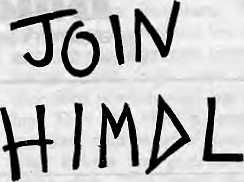 JOIN
HIMDL